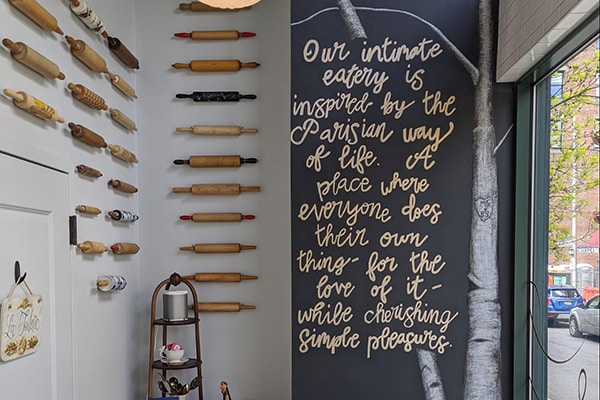 Our intimate
eatery is
inspired by the
Parisian way
of life. A
place where
everyone does
their own
thing- for the
love of it-
while cherishing
simple pleasures.